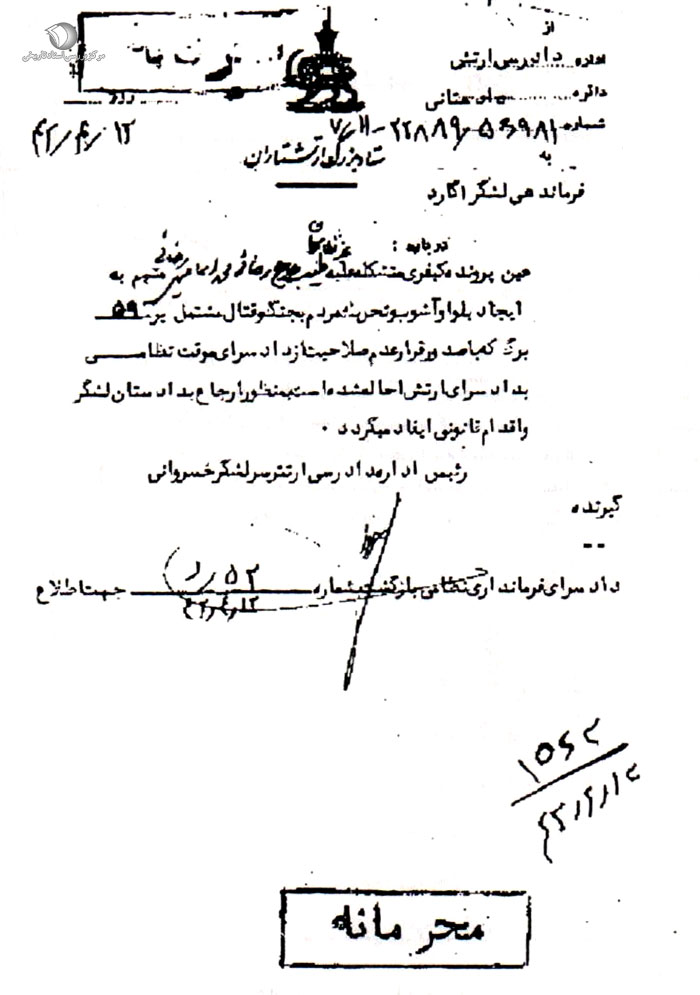 مرکز بررسی اسناد تاریخی
از
اداره دادرسی ارتش
دائره دادستانی
شماره ۷/۱۱-۲۲۸۸۹/۵۶۹۸۱
۴۲/۴/۱۲
به
ستاد بزرگ ارتشتاران
فرماندهی لشگر ۱ گارد
درباره : غیرنظامیان
عین پرونده کیفری متشکله علیه طیب حاج رضائی و محمد اسماعیل رضائی متهم به
ایجاد بلوا و آشوب و تحریک مردم بجنگ و قتال مشتمل بر ۵۹
برگ که با صدور قرار عدم صلاحیت از دادسرای موقت نظامی
بدادسرای ارتش احاله شده است بمنظور ارجاع بدادستان لشگر
و اقدام قانونی ایفاد میگردد .
رئیس اداره دادرسی ارتش سرلشگر خسروانی
گیرنده
--
دادسرای فرمانداری نظامی بازگشت بشماره ۵۲/د جهت اطلاع
۴۲/۴/۱۲
۱۵۶۲
۴۲/۴/۱۲
محرمانه